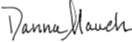 Danna Mauch